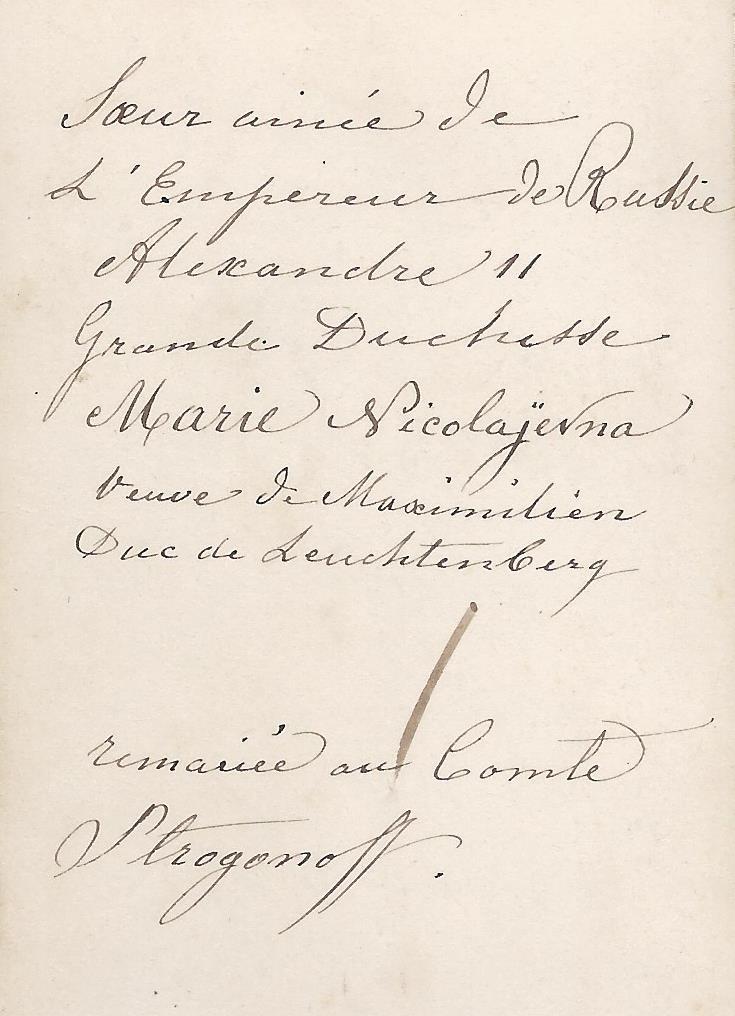 Sœur ainée de
L'Empereur de Russie
Alexandre II
Grande Duchesse
Marie Nicolaÿevna
veuve de Maximilien
Duc de Leuchtenberg
remariée au Comte
Strogonoff.